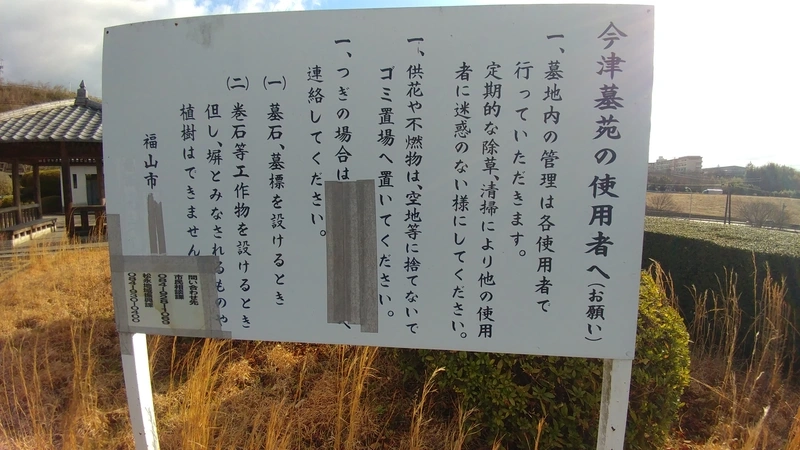 今津墓苑の使用者へ(お願い)
一、墓地内の管理は各使用者で
行っていただきます。
定期的な除草、清掃により他の使用
者に迷惑のない様にしてください。
一、供花や不燃物は、空地等に捨てないで
ゴミ置場へ置いてください。
一、つぎの場合は
連絡してください。
(一) 墓石、墓標を設けるとき
(二) 巻石等工作物を設けるとき
但し、塀とみなされるものや
植樹はできません
福山市
問い合わせ先
市民相談課